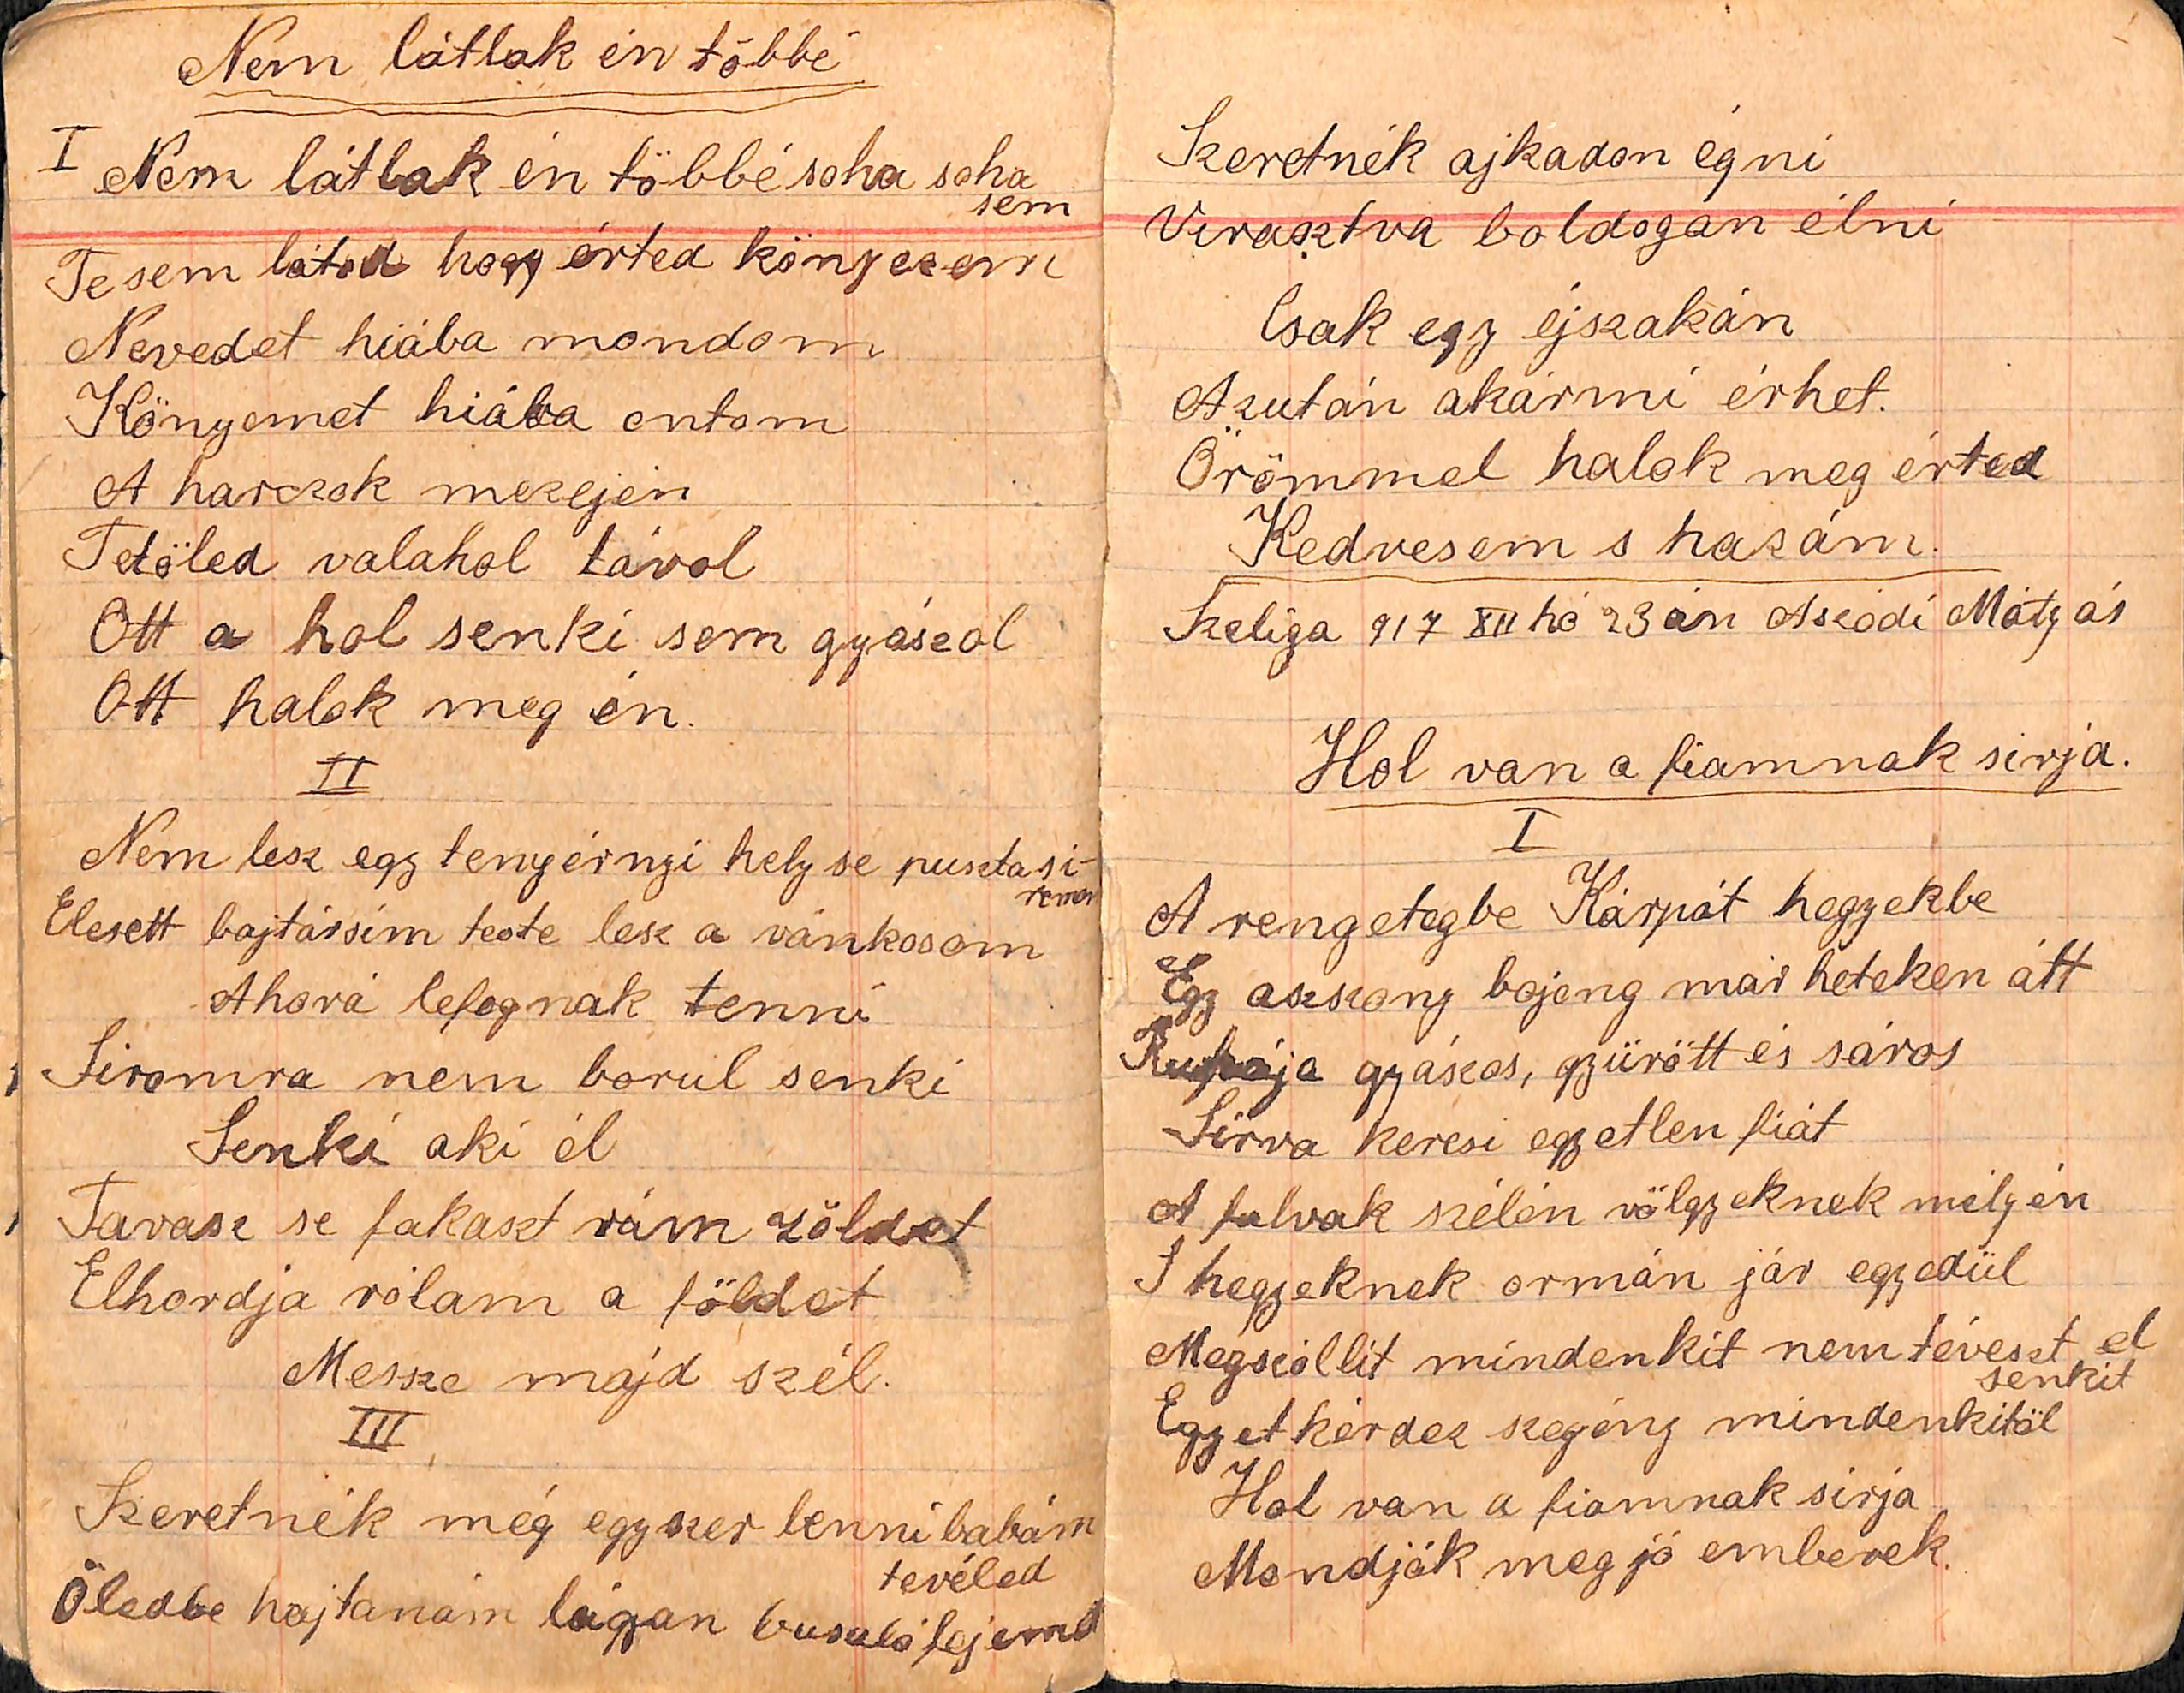 Nem látlak én többé
I Nem látlak én többé soha soha
sem
Te sem látod hogy érted könyezem
Nevedet hiába mondom
Könyemet hiába ontom
A harczok mezején
Tetöled valahol távol
Ott a hol senki sem gyászol
Ott halok meg én.
II
Nem lesz egy tenyérnyi hely se puszta si-
romon
Elesett bajtársim teste lesz a vánkosom
Ahová lefognak tenni
Siromra nem borul senki
Senki aki él
Tavasz se fakaszt rám zöldet
Elhordja rólam a földet
Messze majd szél.
III
Szeretnék még egyszer lenni babám
tevéled
Öledbe hajtanám lágyan busuló fejemet
Szeretnék ajkadon égni
Virasztva boldogan élni
Csak egy éjszakán
Azután akármi érhet.
Örömmel halok meg érted
Kedvesem s hazám.
Szeliga 917 XII hó 23 án Aszódi Mátyás
Hol van a fiamnak sirja.
I
A rengetegbe Kárpát hegyekbe
Egy asszony bojong már heteken átt
Ruhája gyászos, gyürött és sáros
Sirva keresi egyetlen fiát
A falvak szélén völgyeknek mélyén
S hegyeknek ormán jár egyedül
Megszóllit mindenkit nem téveszt el
senkit
Egyet kérdez szegény mindenkitöl
Hol van a fiamnak sirja
Mondják meg jó emberek.